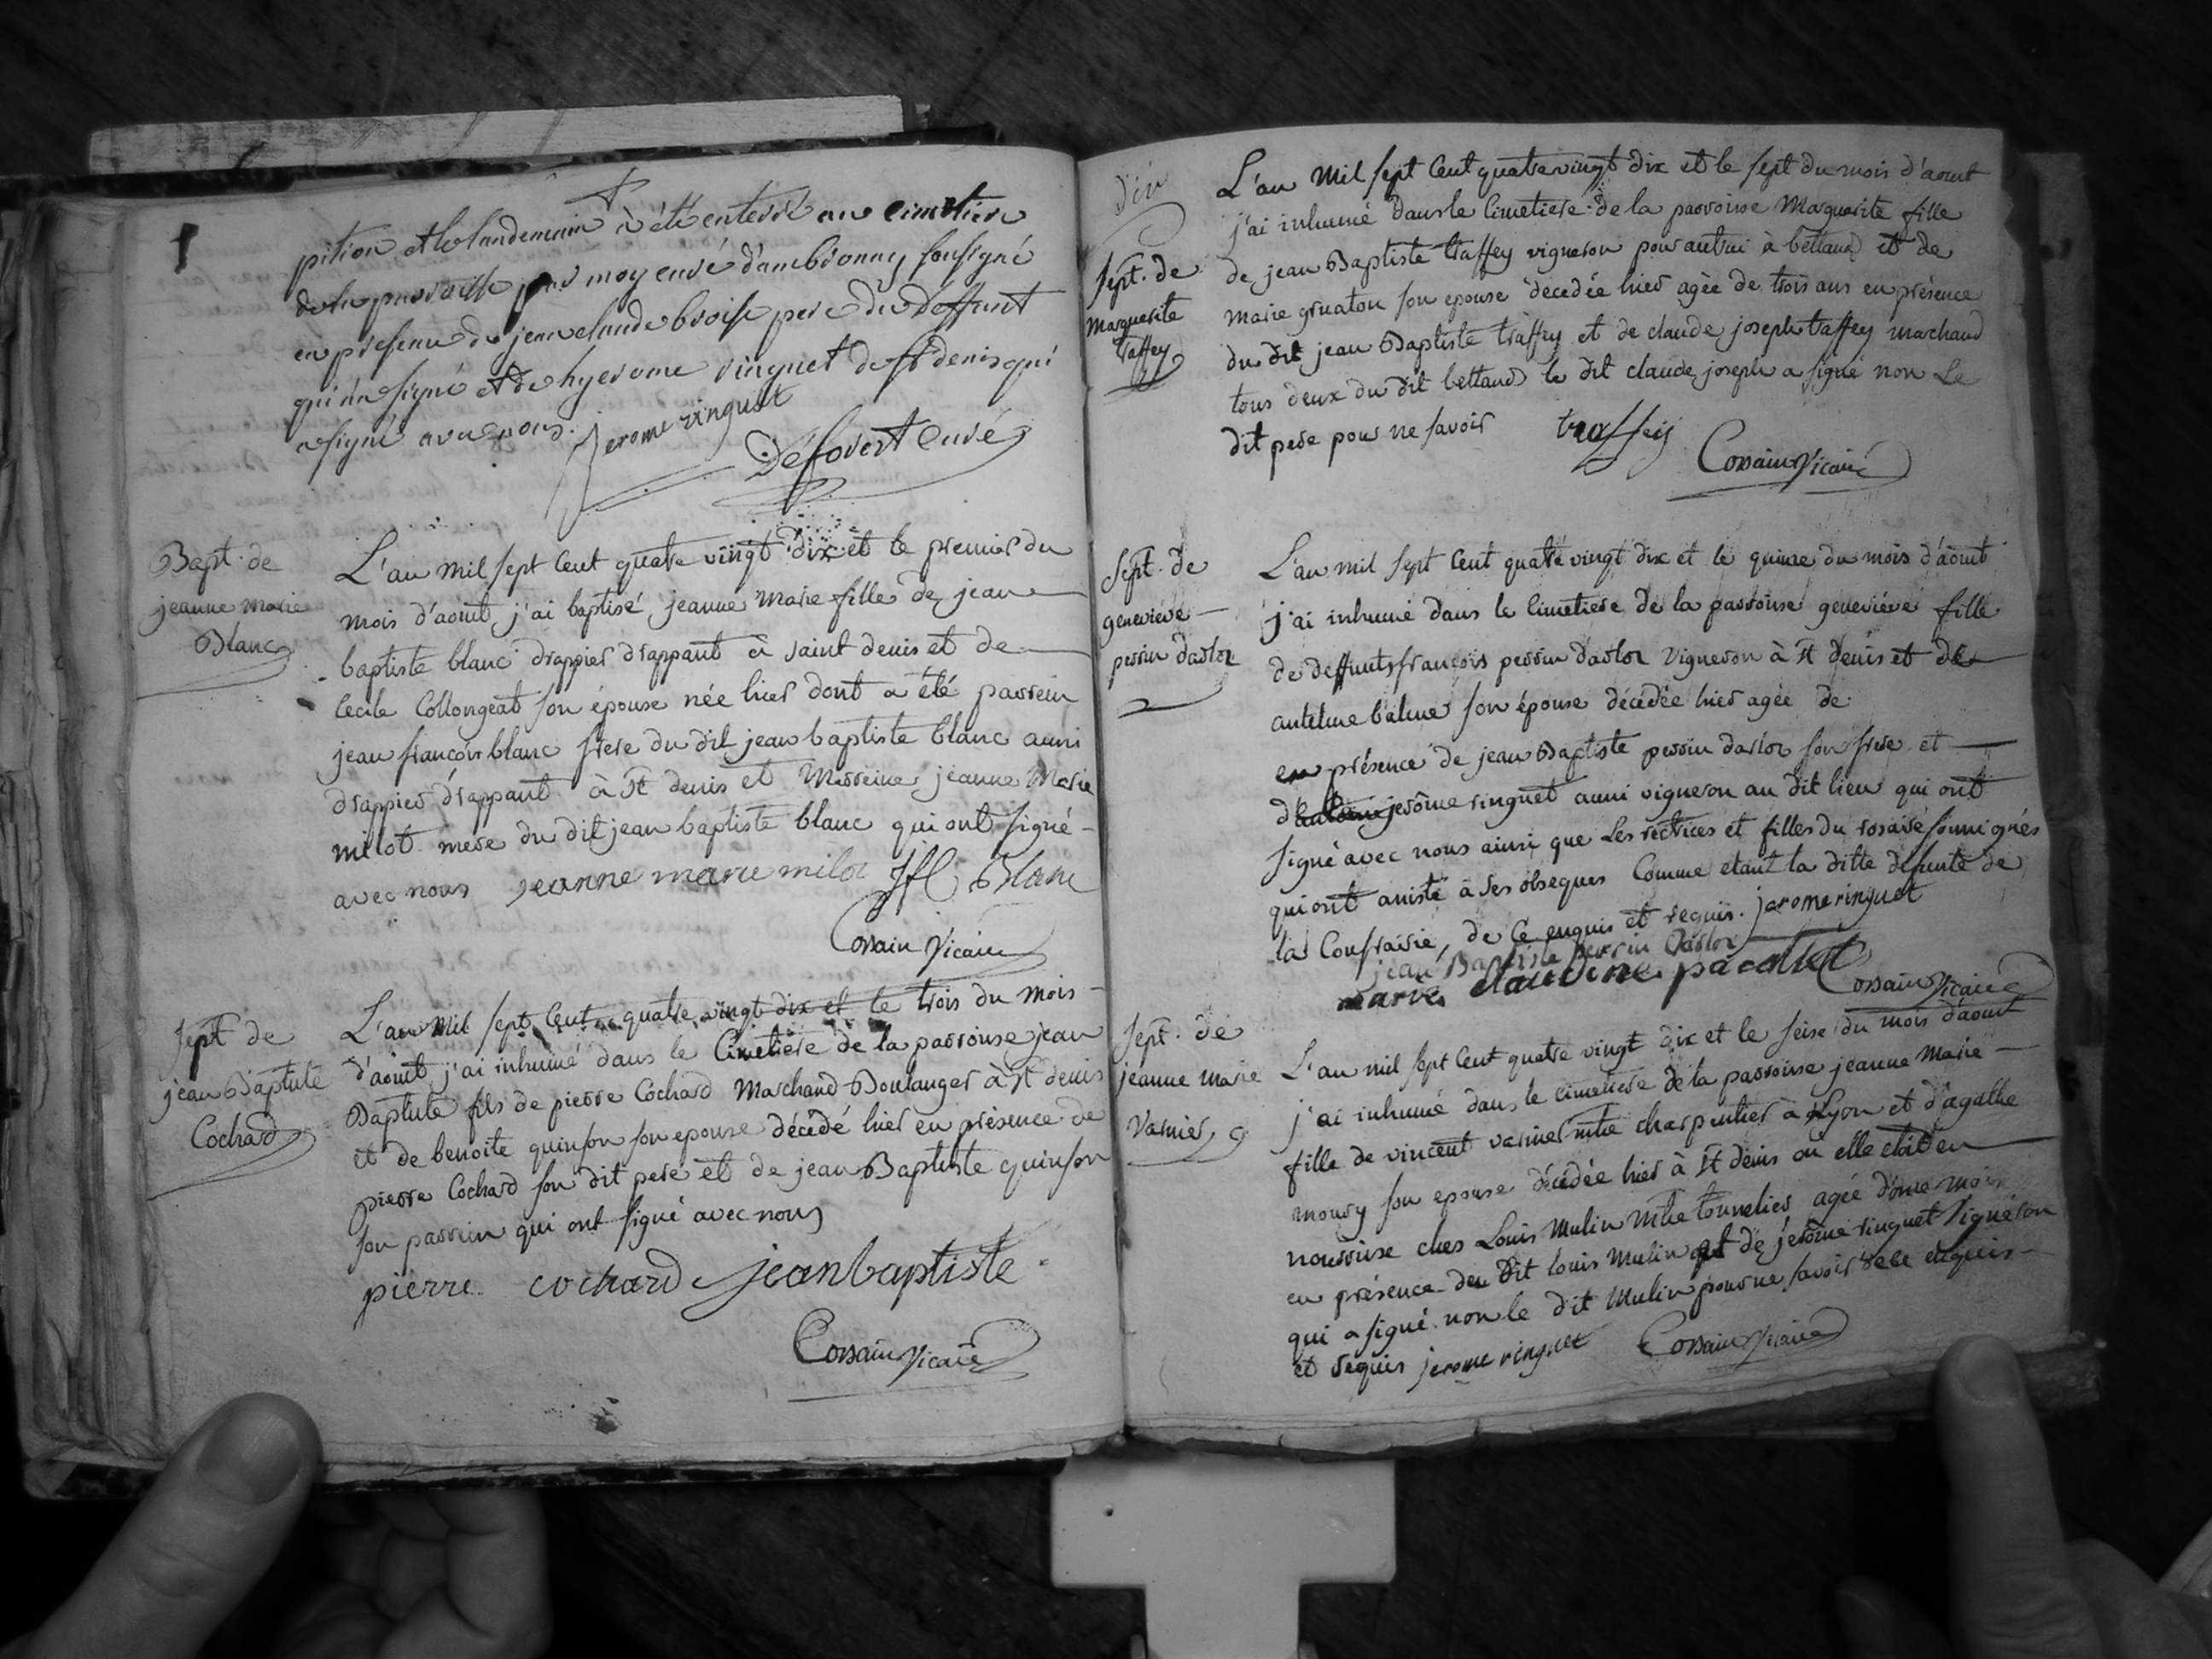 pition et le landemain à été enterré au cimetiere
de la parroisse par moy curé d'ambronay soussigné
en presence de jean claude broise pere du deffunt
qui n'a signé et de hyerome ringuet de st denis qui
a signé avec nous. Jerome ringuet
Curé
Bapt. de
jeanne marie
Blanc
L'an mil sept cent quatre vingt dix et le premier du
mois d'aout j'ai baptisé jeanne Marie fille de jean
baptiste blanc drappier drappant à saint denis et de
cecile Collongeat son épouse née hier dont a été parrein
jean françois blanc frere du dit jean baptiste blanc aussi
drappier drappant à St denis et Marreine jeanne Marie
milot mere du dit jean baptiste blanc qui ont signé
avec nous jeanne marie milot Blanc
Corsain Vicaire
Sept de
jean Baptiste
Cochard
L'an mil sept cent quatre vingt dix et le trois du mois
d'aout j'ai inhumé dans le cimetiere de la parroisse jean
Baptiste fils de pierre Cochard Marchand Boulanger à St denis
et de benoite quinson son epouse décédé hier en présence de
pierre Cochard son dit pere et de jean Baptiste quinson
son parrein qui ont signé avec nous
pierre cochard jean baptiste
Corsain Vicaire
dix
Sept. de
Marguerite
traffey
L'an mil sept cent quatre vingt dix et le sept du mois d'aout
j'ai inhumé dans le cimetiere de la parroisse Marguerite fille
de jean Baptiste traffey vigneron pour autrui à bettand et de
marie gruaton son epouse décedée hier agée de trois ans en présence
du dit jean Baptiste traffey et de claude joseph traffey marchand
tous deux du dit bettand le dit claude joseph a signé non Le
dit pere pour ne savoir traffey
Corsain Vicaire
Sept. de
geneviéve
perrin darloz
L'an mil sept cent quatre vingt dix et le quinze du mois d'aout
j'ai inhumé dans le cimetiere de la parroisse geneviéve fille
de deffunts françois perrin darloz vigneron à St denis et de
antelme balme son épouse décédée hier agée de
en présence de jean Baptiste perrin darloz son frere et
d'antoine jerôme ringuet aussi vigneron au dit lieu qui ont
signé avec nous ainsi que Les rectrices et filles du rosaire soussignées
qui ont assisté à ses obseques Comme etant la ditte defunte de
la Confrairie, de Ce enquis et requis. jerome ringuet
jean Baptiste perrin darloz
marie claudine pacallet
Corsain Vicaire
Sept. de
jeanne marie
Varnier
L'an mil sept cent quatre vingt dix et le seise du mois d'aout
j'ai inhumé dans le cimetiere de la parroisse jeanne Marie
fille de vincent varnier mtre charpentier à Lyon et d'agathe
moury son epouse décédée hier à St denis où elle etoit en
nourrise ches Louis Mulin Mtre tonnelier agée d'onse mois
en présence du dit louis Mulin et de jerôme ringuet Vigneron
qui a signé non le dit Mulin pour ne savoir de ce enquis
et requis jerome ringuet Corsain Vicaire